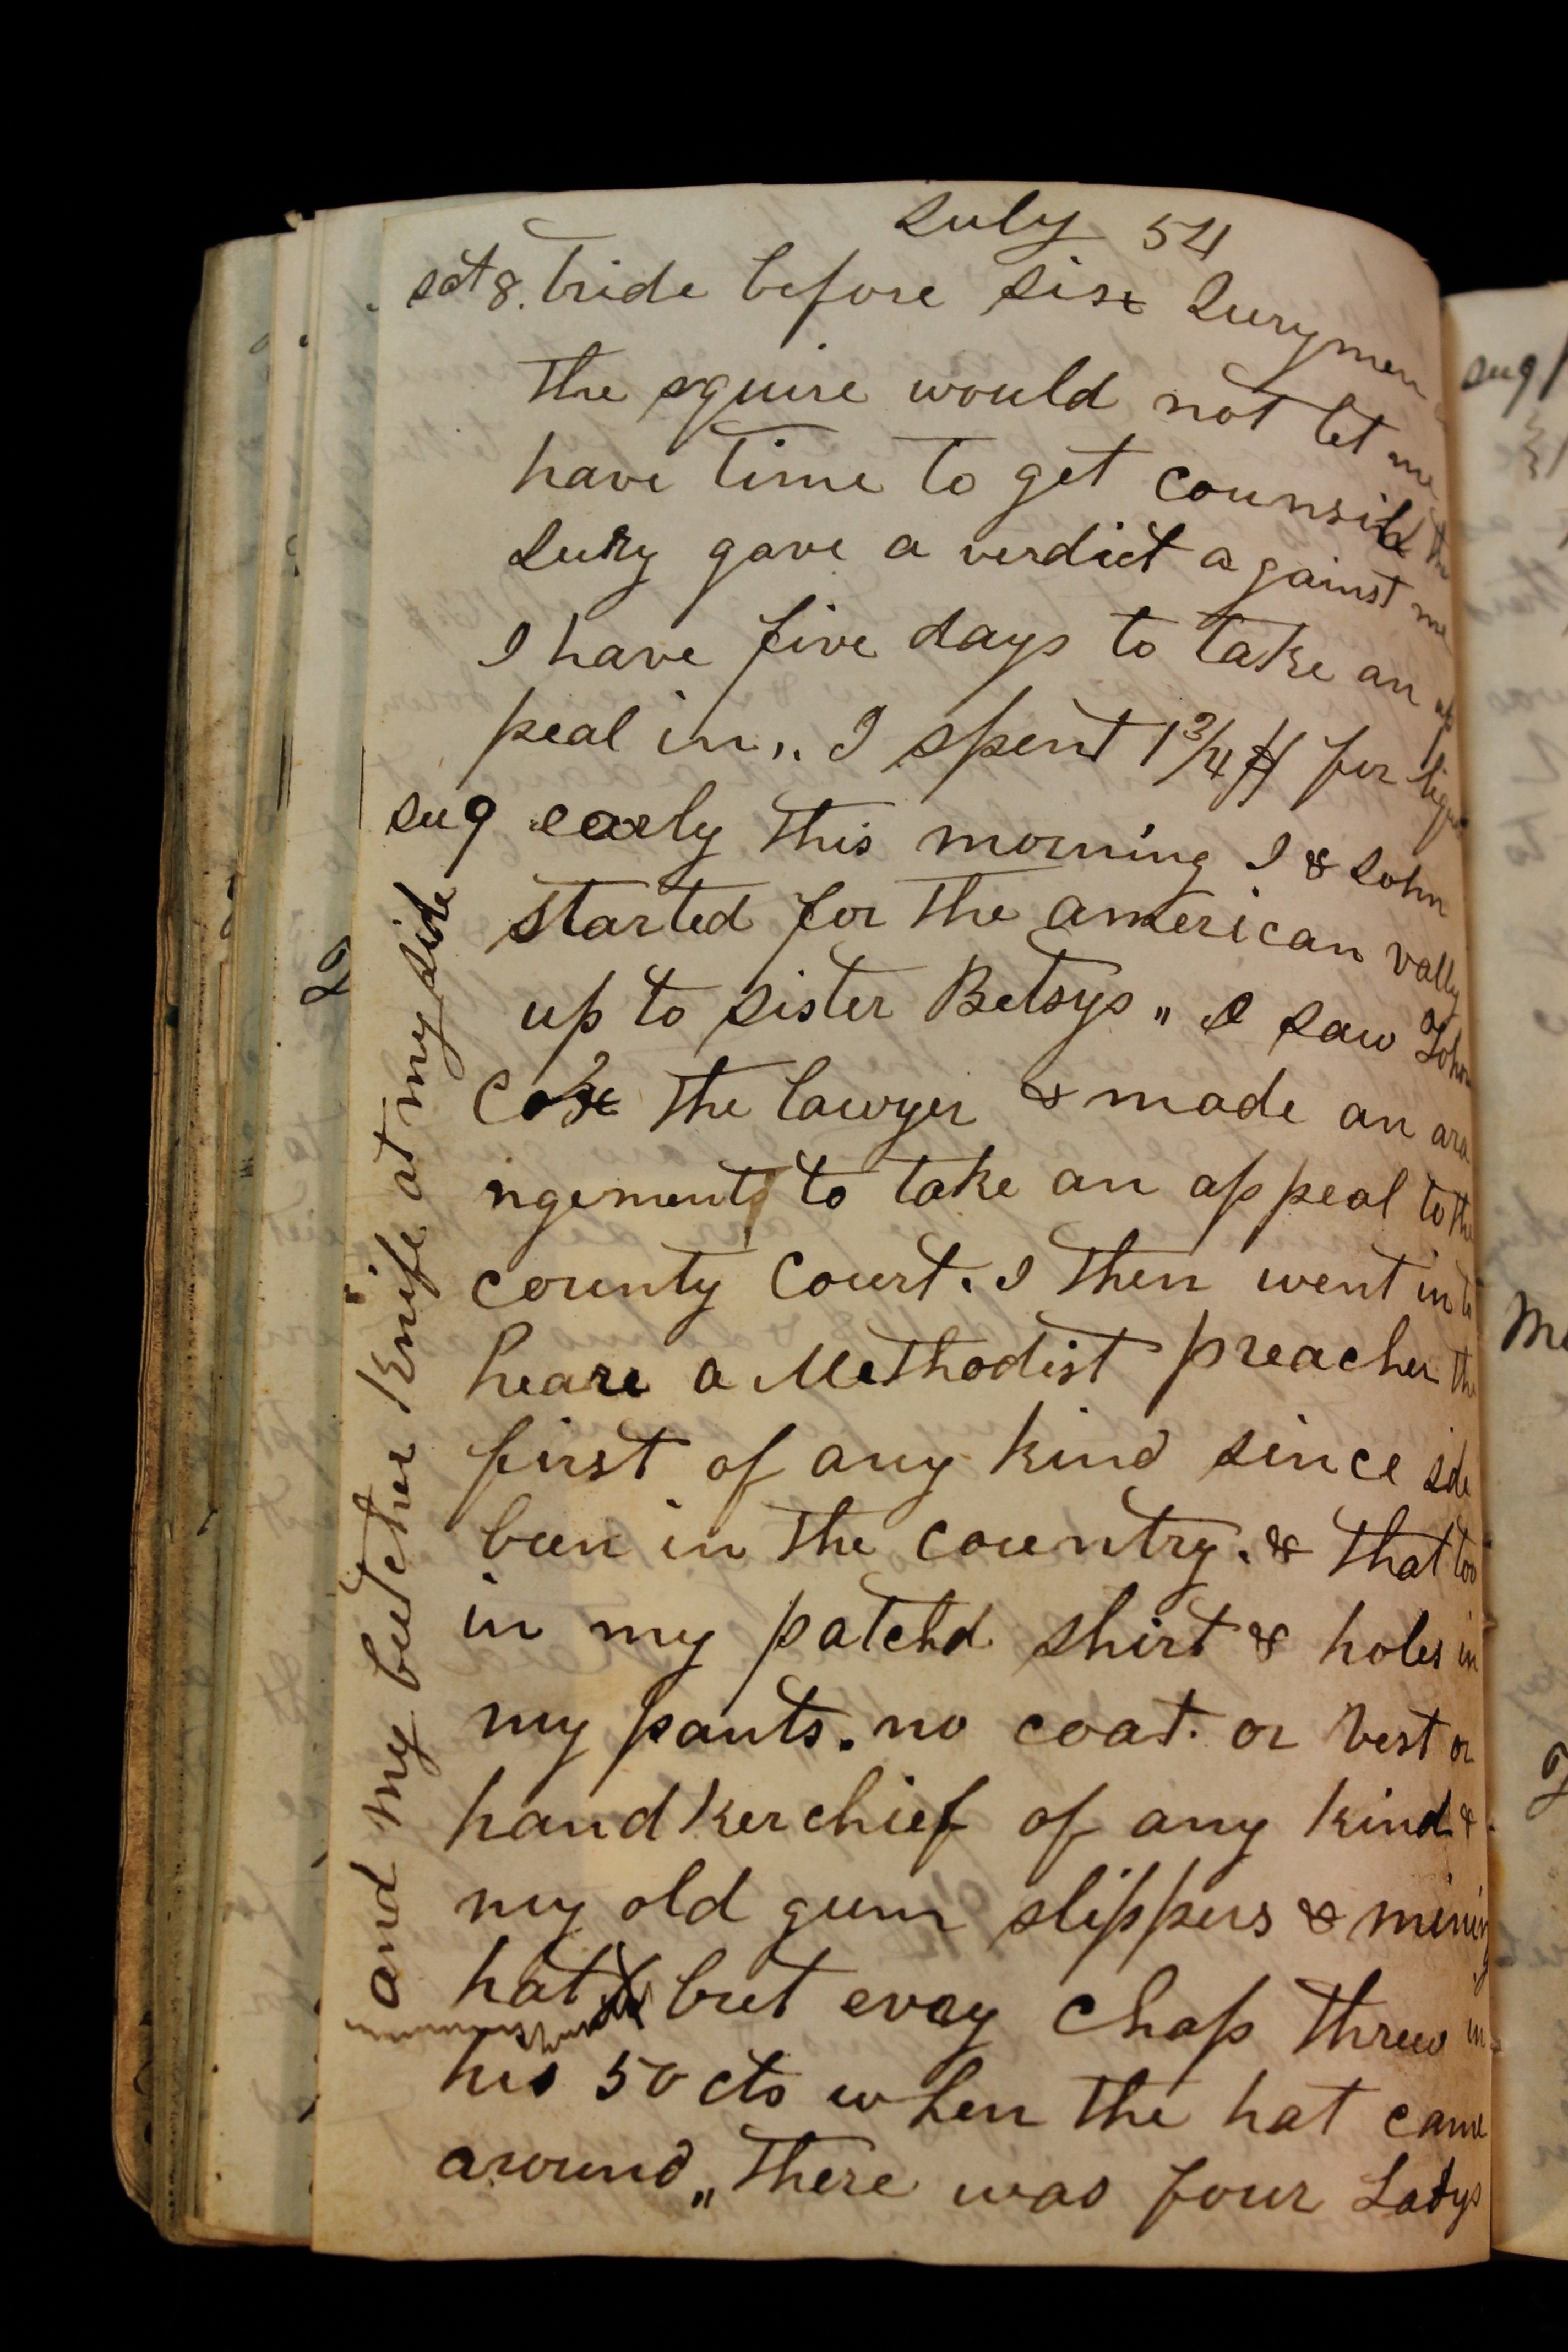 July 54
sat 8. tride before six Jurymen
the squire would not let me
have time to get counsil the
Jury gave a verdict a gainst me
I have five days to take an ap
peal in,. I spent 1 3/4 $ for
su 9 early this morning I & John
started for the american vally
up to sister Betsys ,, I saw John
Cox the lawyer & made an ara
ngement to take an appeal to the
county Court. I then went in to
heare a Methodist preacher the
first of any kind since ide
been in the country. & that too
in my patchd shirt & holes in
my pants. no coat. or vest or
handkerchief of any kind &
my old gum slippers & mining
hat but evry chap threw in
his 50 cts when the hat came
around ,, there was four Ladys
and my butcher knife at my side
su 9